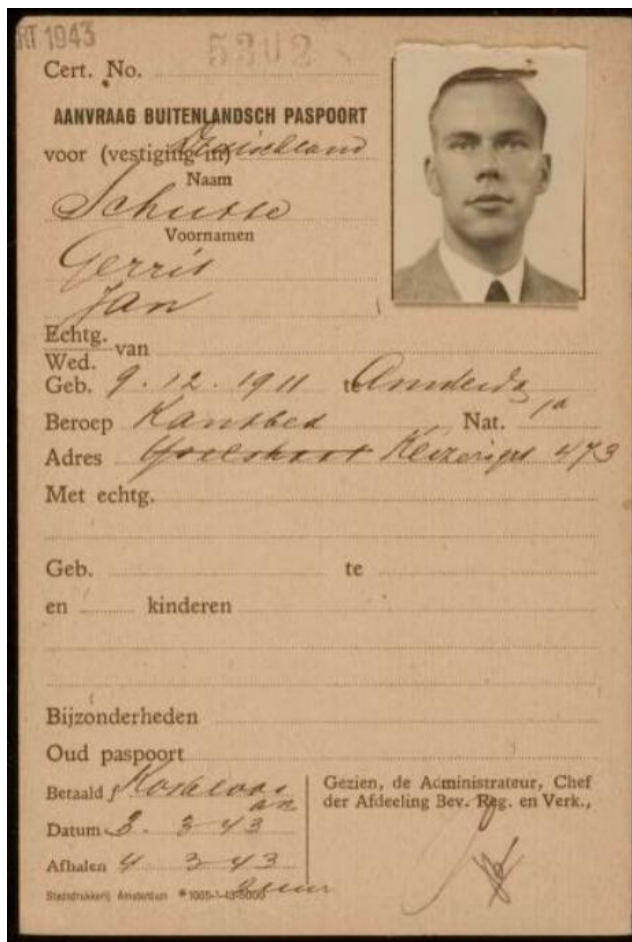 RT 1943
5302
Cert. No.
AANVRAAG BUITENLANDSCH PASPOORT
voor (vestiging in) Duitschland
Naam
Schutte
Voornamen
Gerrit
Jan
Echtg.
Wed. van
Geb. 9.12.1911 te Amsterda
Beroep Kantbed Nat. ja
Adres Keizersgr 473
Met echtg.
Geb. te
en kinderen
Bijzonderheden
Oud paspoort
Betaald f Kosteloos
Datum 3. 3-43
Afhalen 4 3-43
2 uur
Gezien, de Administrateur, Chef
der Afdeeling Bev. Reg. en Verk.,
Stadsdrukkerij Amsterdam *1005-1-43-5000